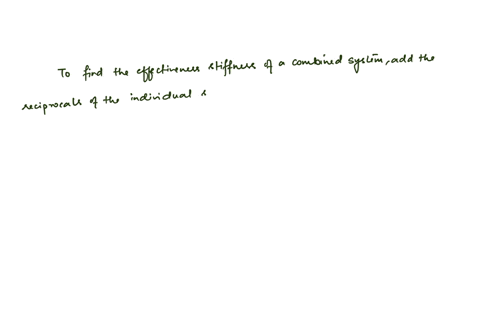 To find the effectiveness stiffness of a combined system, add the
reciprocals of the individual s